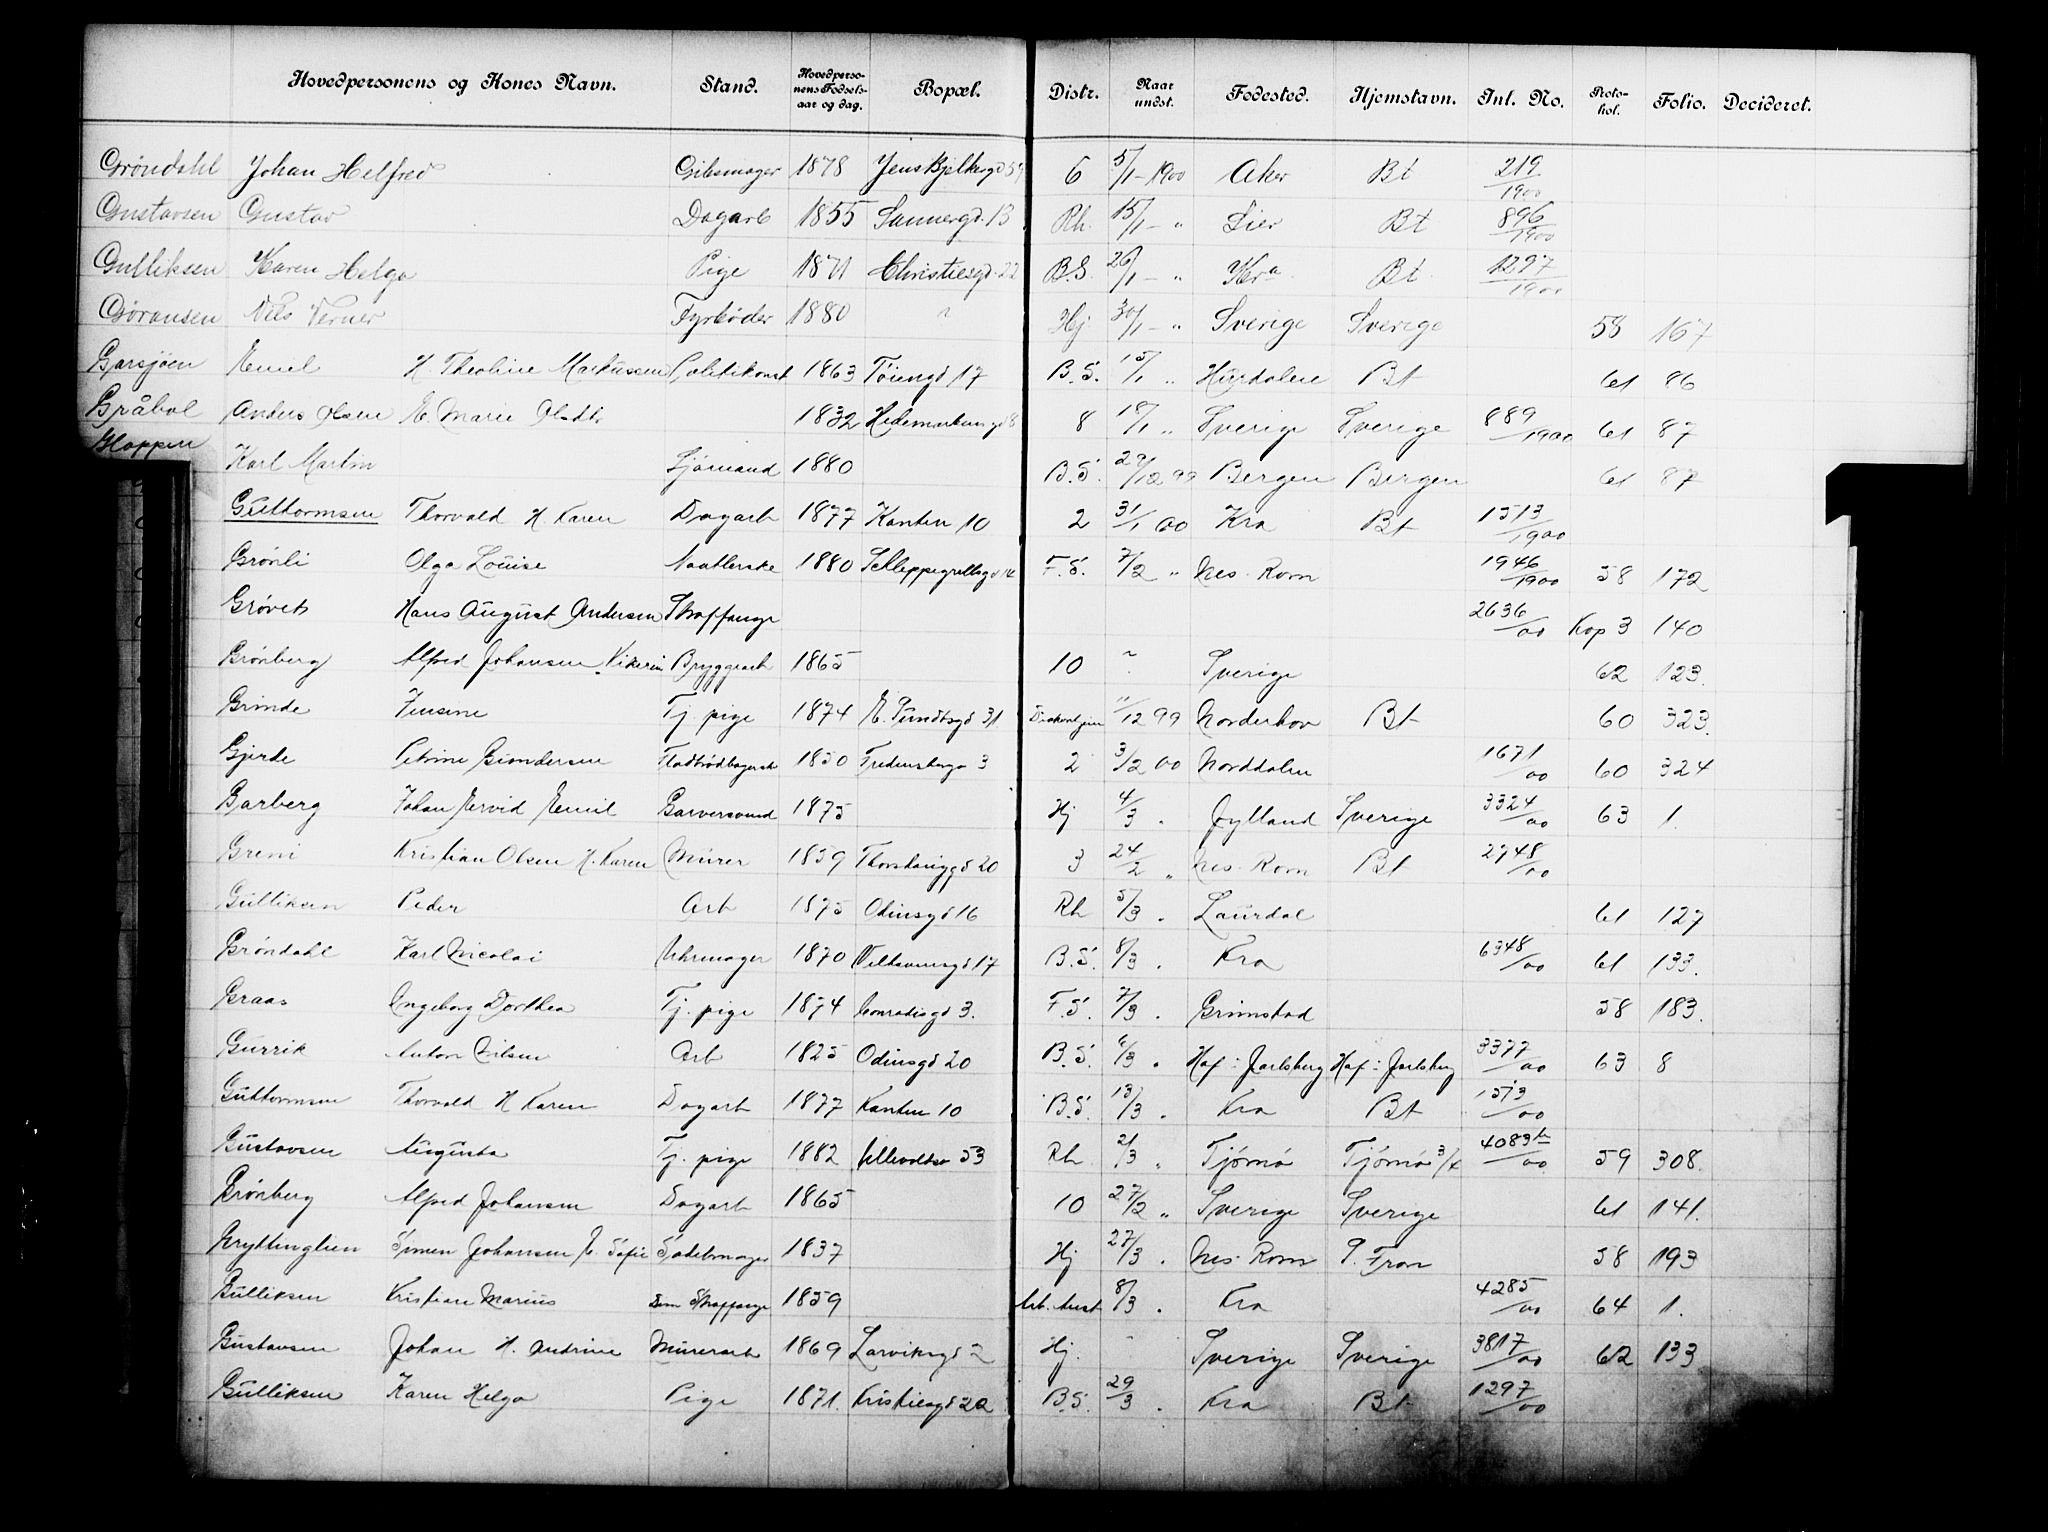 Hovedpersonens og Kones Navn. Stand. Hovedpersonens Fødselsaar og dag. Bopæl. Distr. Naar undst. Fødested. Hjemstavn. Jnl. No. Protokol. Folio. Decideret.
Grøndahl Johan Helfred Gibsmager 1878 Jens Bjelkesgd 59 6 5/1-1900 Aker Bt 219/1900
Gustavsen Gustav Dagarb 1855 Sannergd. 13 Rh. 15/1- " Lier Bt 896/1900
Gulliksen Karen Helga Pige 1871 Christiesgd. 22 B.S. 26/1- " Kra Bt. 1297/1900
Gøransen Nils Verner Fyrbøder 1880 " Hj. 30/1- " Sverige Sverige 58 167
Garsjøen Emil H. Theoline Markussen Politikonst 1863 Tøiengd 17 B.S. 15/1 " Hurdalen Bt 61 86
Gråbol Anders Olsen E. Marie Olsdtr 1832 Hedemarkensgd 8 8 18/1 " Sverige Sverige 889/1900 61 87
Hoppen Karl Martin Sjømand 1880 B.S. 29/12 99 Bergen Bergen 61 87
Guttormsen Thorvald H Karen Dagarb 1877 Kanten 10 2 31/1 00 Kra Bt 1513/1900
Grønli Olga Louise Naatlerske 1880 Schleppegrellsgd 14 F.S. 7/2 " Nes. Rom 1946/1900 58 172
Grøvets Hans August Andersen Straffange 2636/00 Kop 3 140
Grønberg Alfred Johansen Bryggearb 1865 10 " Sverige 62 123.
Grinde Jensine Tj. pige 1874 E. Sundtsgd 31 11/12 99 Norderhov Bt 60 323.
Gjerde Petrine Gundersen Fladbrødbagersk 1850 Fredensborgv 3 2 3/2 00 Norddalen 1671/00 60 324
Garberg Johan Arvid Emil Garversvend 1875 Hj 4/3 " Jylland Sverige 3324/00 63 1.
Greni Kristian Olsen H. Karen Murer 1859 20 3 24/2 " Nes. Rom Bt 2948/00
Gulliksen Peder Arb 1875 Odinsgd 16 Rh 5/3 " Laurdal 61 127
Grøndahl Karl Nicolai Uhrmager 1870 17 B.S. 8/3 " Kra 6348/00 61 133.
Graas Ingeborg Dorthea Tj. pige 1874 Conradisgd 3. F.S. 7/3 " Grimstad 58 183.
Gurrik Anton Nilsen Arb 1825 Odinsgd 20 B.S. 6/3 " Hof i Jarlsberg Hof i Jarlsberg 3377/00 63 8
Guttormsen Thorvald H Karen Dagarb 1877 Kanten 10 B.S. 13/3 " Kra Bt 1513/00
Gustavsen Augusta Tj. pige 1882 Ullevoldsv 53 Rh 21/3 " Tjømø Tjømø 3/4 4083/00 59 308.
Grønberg Alfred Johansen Dagarb 1865 10 27/2 " Sverige Sverige 61 141.
Gryttinglien Simen Johansen E. Sofie Sadelmager 1837 Hj 27/3 " Nes. Rom S. Fron 58 193
Gulliksen Kristian Marius Dem Straffange 1859 Arb. Anst 8/3 " Kra 4285/00 64 1.
Gustavsen Johan H. Andrine Murerarb 1869 Larviksgd 2 Hj. " Sverige Sverige 3817/00 62 133
Gulliksen Karen Helga Pige 1871. Kristiesgd 22 B.S. 29/3 " Kra Bt 1297/00